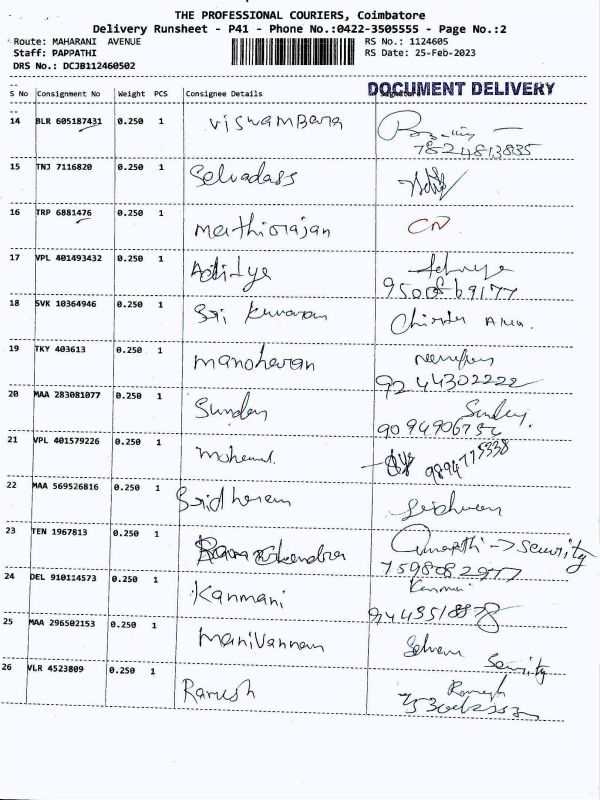 THE PROFESSIONAL COURIERS, Coimbatore
Delivery Runsheet - P41 - Phone No.:0422-3505555 - Page No.:2
Route: MAHARANI AVENUE RS No.: 1124605
Staff: PAPPATHI RS Date: 25-Feb-2023
DRS No.: DCJB112460502
DOCUMENT DELIVERY
S No Consignment No Weight PCS Consignee Details
14 BLR 605187431 0.250 1 Viswambara
7824813835
15 TNJ 7116820 0.250 1 Selvadass
16 TRP 6881476 0.250 1 Mathirajan CN
17 VPL 401493432 0.250 1 Aditya
18 SVK 10364946 0.250 1 Sri Kumaran
19 TKY 403613 0.250 1 Manoharan
9244302222
20 MAA 283081077 0.250 1 Sunday Sunday.
21 VPL 401579226 0.250 1 9894775338
22 MAA 569526816 0.250 1 Sridharan
23 TEN 1967813 0.250 1 Rama Chandra -> Security
24 DEL 910114573 0.250 1 Kanmani Kanmani
25 MAA 296502153 0.250 1 Manivannan Security
26 VLR 4523809 0.250 1 Ramesh Ramesh